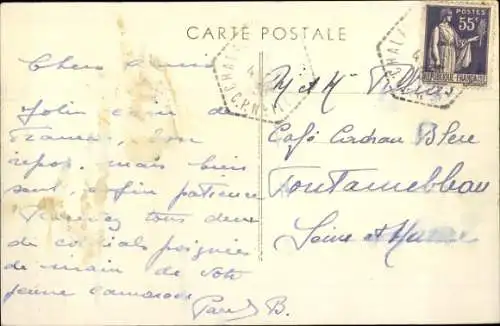 CARTE POSTALE
POSTES
55c
REPUBLIQUE FRANÇAISE
Chers amis
Joli coin de
France, bon
repos, mais bien
sant, enfin patience
Recevez tous deux
de cordiales poignées
de main de votre
jeune camarade
B.
M et Mme
Café Cadran Bleu
Fontainebleau
Seine et Marne